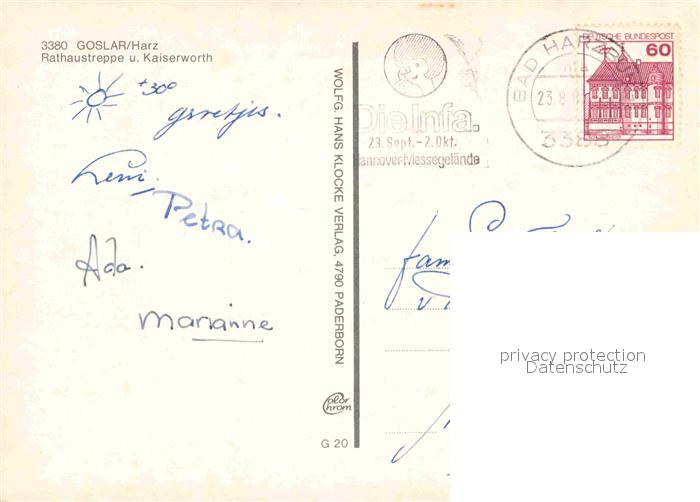 3380 GOSLAR/Harz
Rathaustreppe u. Kaiserworth
+30°
groetjes.
Leni.
Petra.
Ada.
Marianne
WOLFG. HANS KLOCKE VERLAG, 4790 PADERBORN
Color
chrom
G 20
Die Infa.
23. Sept. - 2. Okt.
Hannover-Messegelände
BAD HARZ
23.8.
3388
DEUTSCHE BUNDESPOST
60
fam
privacy protection
Datenschutz